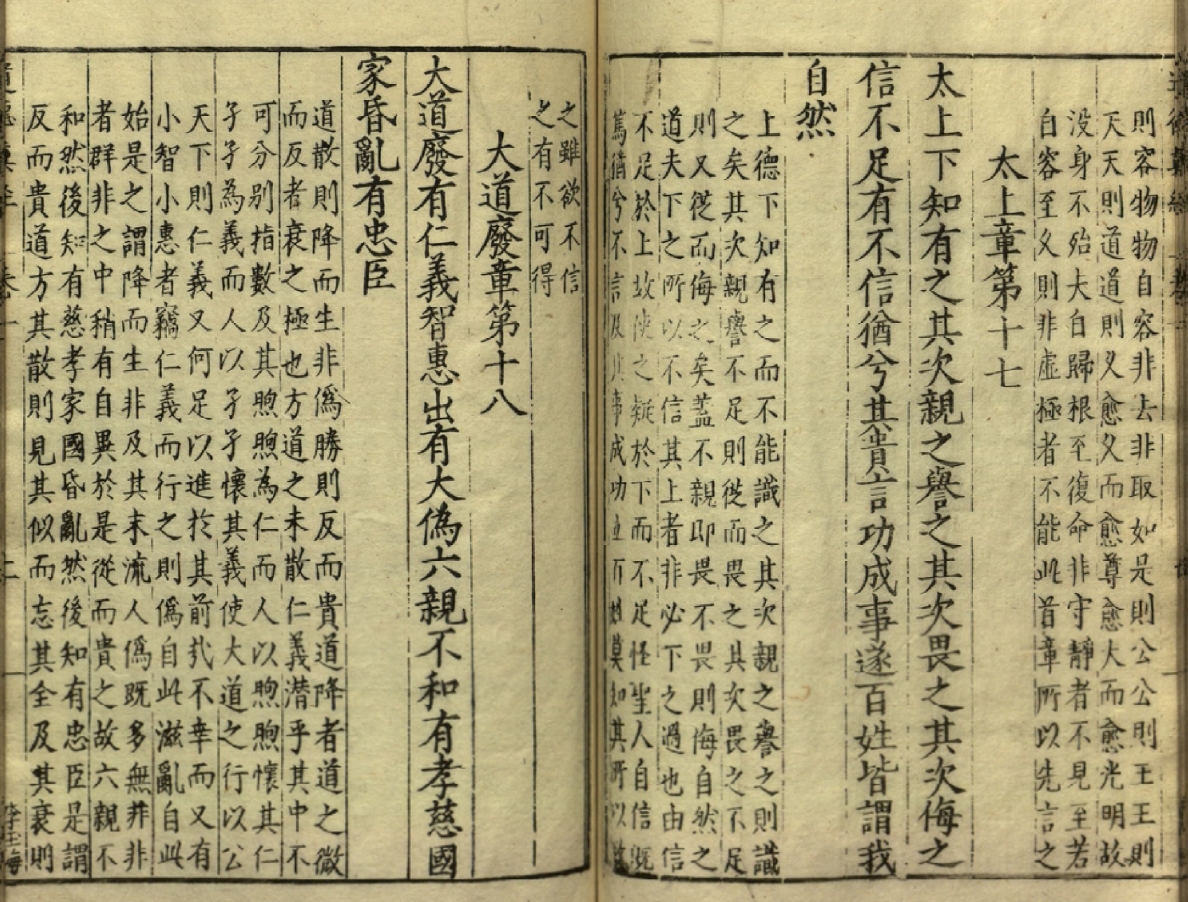 則容物物自容非去非取如是則公公則王王則
天天則道道則久愈久而愈尊愈大而愈光明故
没身不殆大白歸根至復命非守靜者不見至若
自容至久則非虛極者不能此首章所以先言之
太上章第十七
太上下知有之其次親之譽之其次畏之其次侮之
信不足有不信猶兮其貴言功成事遂百姓皆謂我
自然
上德下知有之而不能識之其次親之譽之則識
之矣其次親譽不足則從而畏之其次畏之不足
則又從而侮之矣蓋不親即畏不畏則侮自然之
道夫下之所以不信其上者非必下之過也由信
不足於上故使之疑於下而不足怪聖人自信既
篤猶兮不言及其事成功立而
之雖欲不信
之有不可得
大道廢章第十八
大道廢有仁義智惠出有大偽六親不和有孝慈國
家昏亂有忠臣
道散則降而生非偽勝則反而貴道降者道之微
而反者衰之極也方道之未散仁義潛乎其中不
可分别指數及其煦煦為仁而人以煦煦懷其仁
孑孑為義而人以孑孑懷其義使大道之行以公
天下則仁義又何足以進於其前㢤不幸而又有
小智小惠者竊仁義而行之則偽自此滋亂自此
始是之謂降而生非及其末流人偽既多無非非
者群非之中稍有自異於是從而貴之故六親不
和然後知有慈孝家國昏亂然後知有忠臣是謂
反而貴道方其散則見其似而忘其全及其衰則